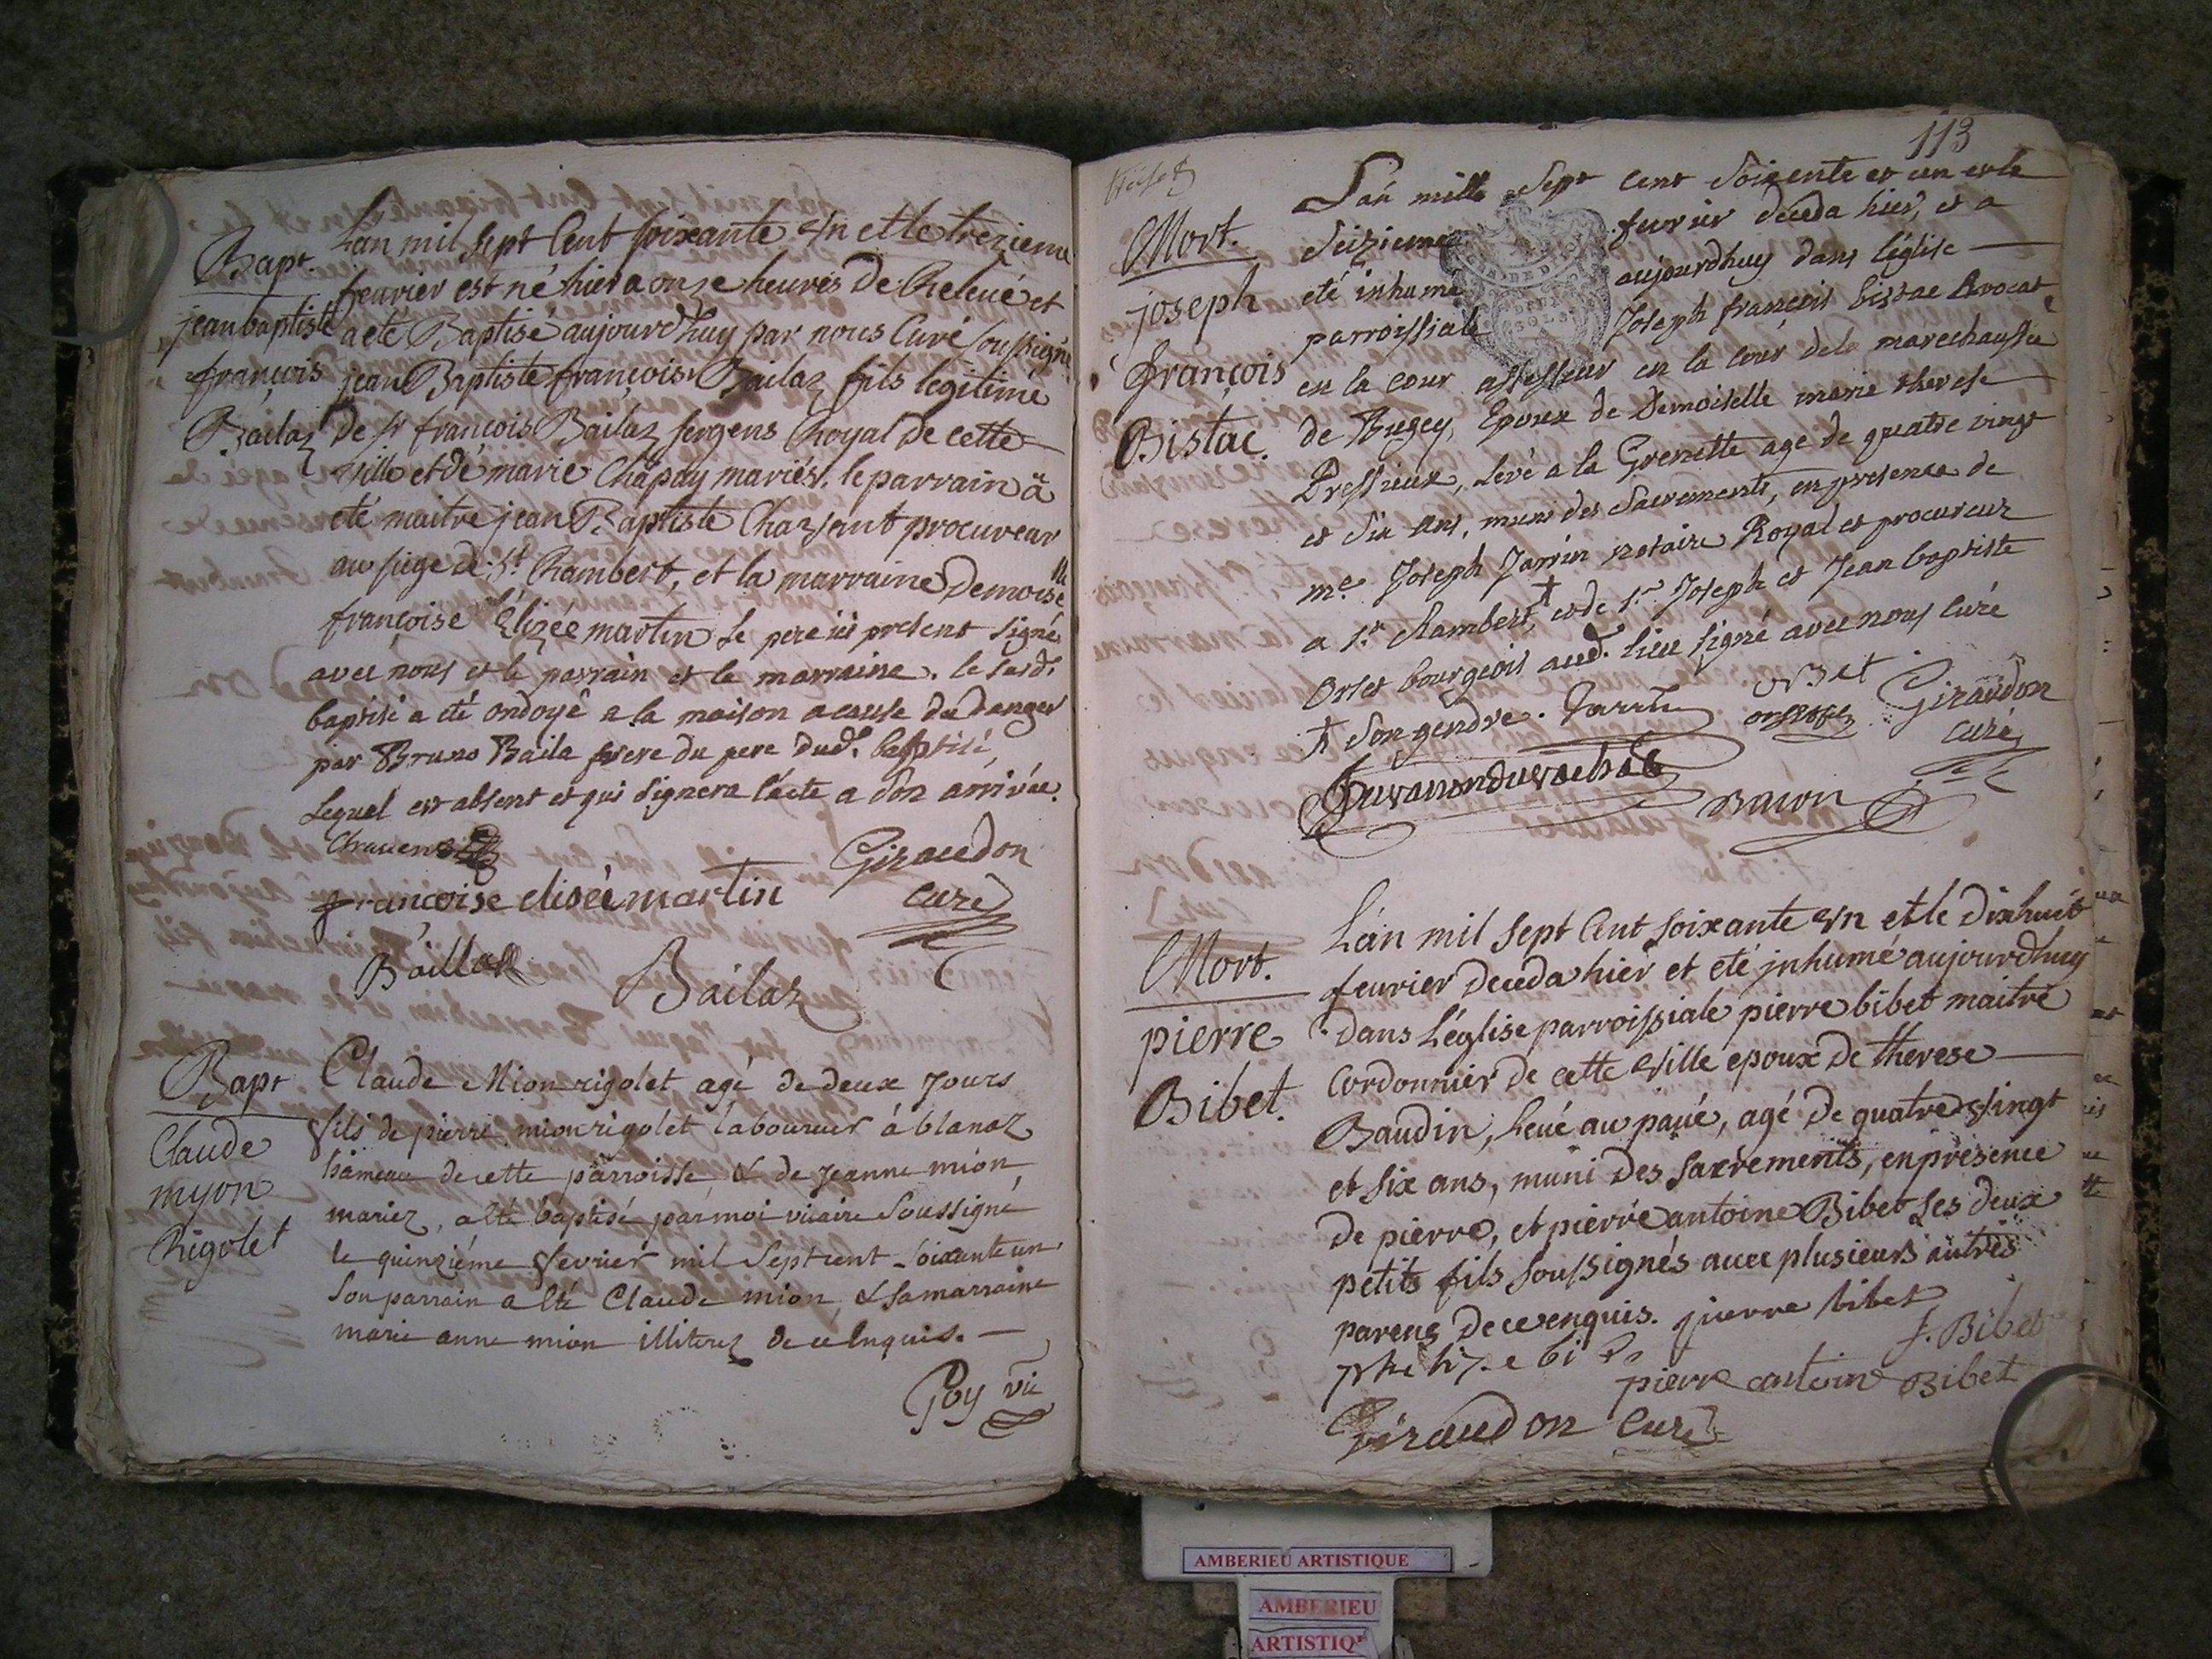 Bapt.
jean baptiste
françois
Bailaz
L'an mil sept Cent soixante Un et le trezieme
feurier est né hier a onze heures De Releué et
a eté Baptisé aujourdhuy par nous Curé soussigné
jean Baptiste françois Bailaz fils legitime
De sr françois Bailaz sergens Royal De cette
ville et de marie Chapuy mariés. le parrain â
eté maitre jean Baptiste procureur
au siege de St Rambert, et la marraine Demoiselle
françoise Elizée martin Le pere ici present signé
avec nous et le parrain et la marraine. le susd.
baptisé a eté ondoyé a la maison a cause du danger
par Bruno Baila frere du pere dud. baptisé,
Lequel est absent et qui signera l'acte a son arrivée.
françoise eliseé martin
Giraudon
curé
Baillaz
Bailaz
Bapt
Claude
myon
Rigolet
Claude Mion rigolet agé de deux jours
fils de pierre mion rigolet laboureur á blanaz
hameau de cette parroisse, & de jeanne mion
mariez, a été baptisé par moi vicaire Soussigné
le quinziéme fevrier mil Sept cent soixante un
Son parrain a été Claude mion, & sa marraine
marie anne mion illiterez de ce Enquis. —
Goy vic
113
Mort.
joseph
françois
Bistac.
L'an mille Sept cent Soixente et un et le
Seizieme feurier deceda hier, et a
eté inhumé aujourdhuy dans l'église
parroissiale Joseph françois bistac Avocat
en la cour assesseur en la cour dela marechaussee
de Bugey, Epoux de Demoiselle marie therese
Pressieux, Levé a la Grenette age de quatre vingt
et Six ans, muni des Sacrements, en presence de
me. Joseph Jarrin notaire Royal et procureur
a St. Rambert, † et de sr. Joseph et Jean baptiste
Orset bourgeois aud. lieu signé avec nous curé
† Son gendre. Jarrin
orset
orset fils
Giraudon
curé
Mort.
pierre
Bibet.
L'an mil sept Cent soixante Un et le Dixhuit
feurier deceda hier et eté jnhumé aujourdhuy
Dans L'église parroissiale pierre bibet maitre
Cordonnier de cette Ville epoux De therese
Baudin, Leué au paué, agé De quatre Vingt
et six ans, muni Des sacrements, en presence
De pierre, et pierre antoine Bibet Ses deux
petits fils soussignés avec plusieurs autres
parens De ce enquis. pierre bibet
f. Bibet
pierre antoine Bibet
Giraudon Curé
AMBERIEU ARTISTIQUE
AMBERIEU
ARTISTIQ